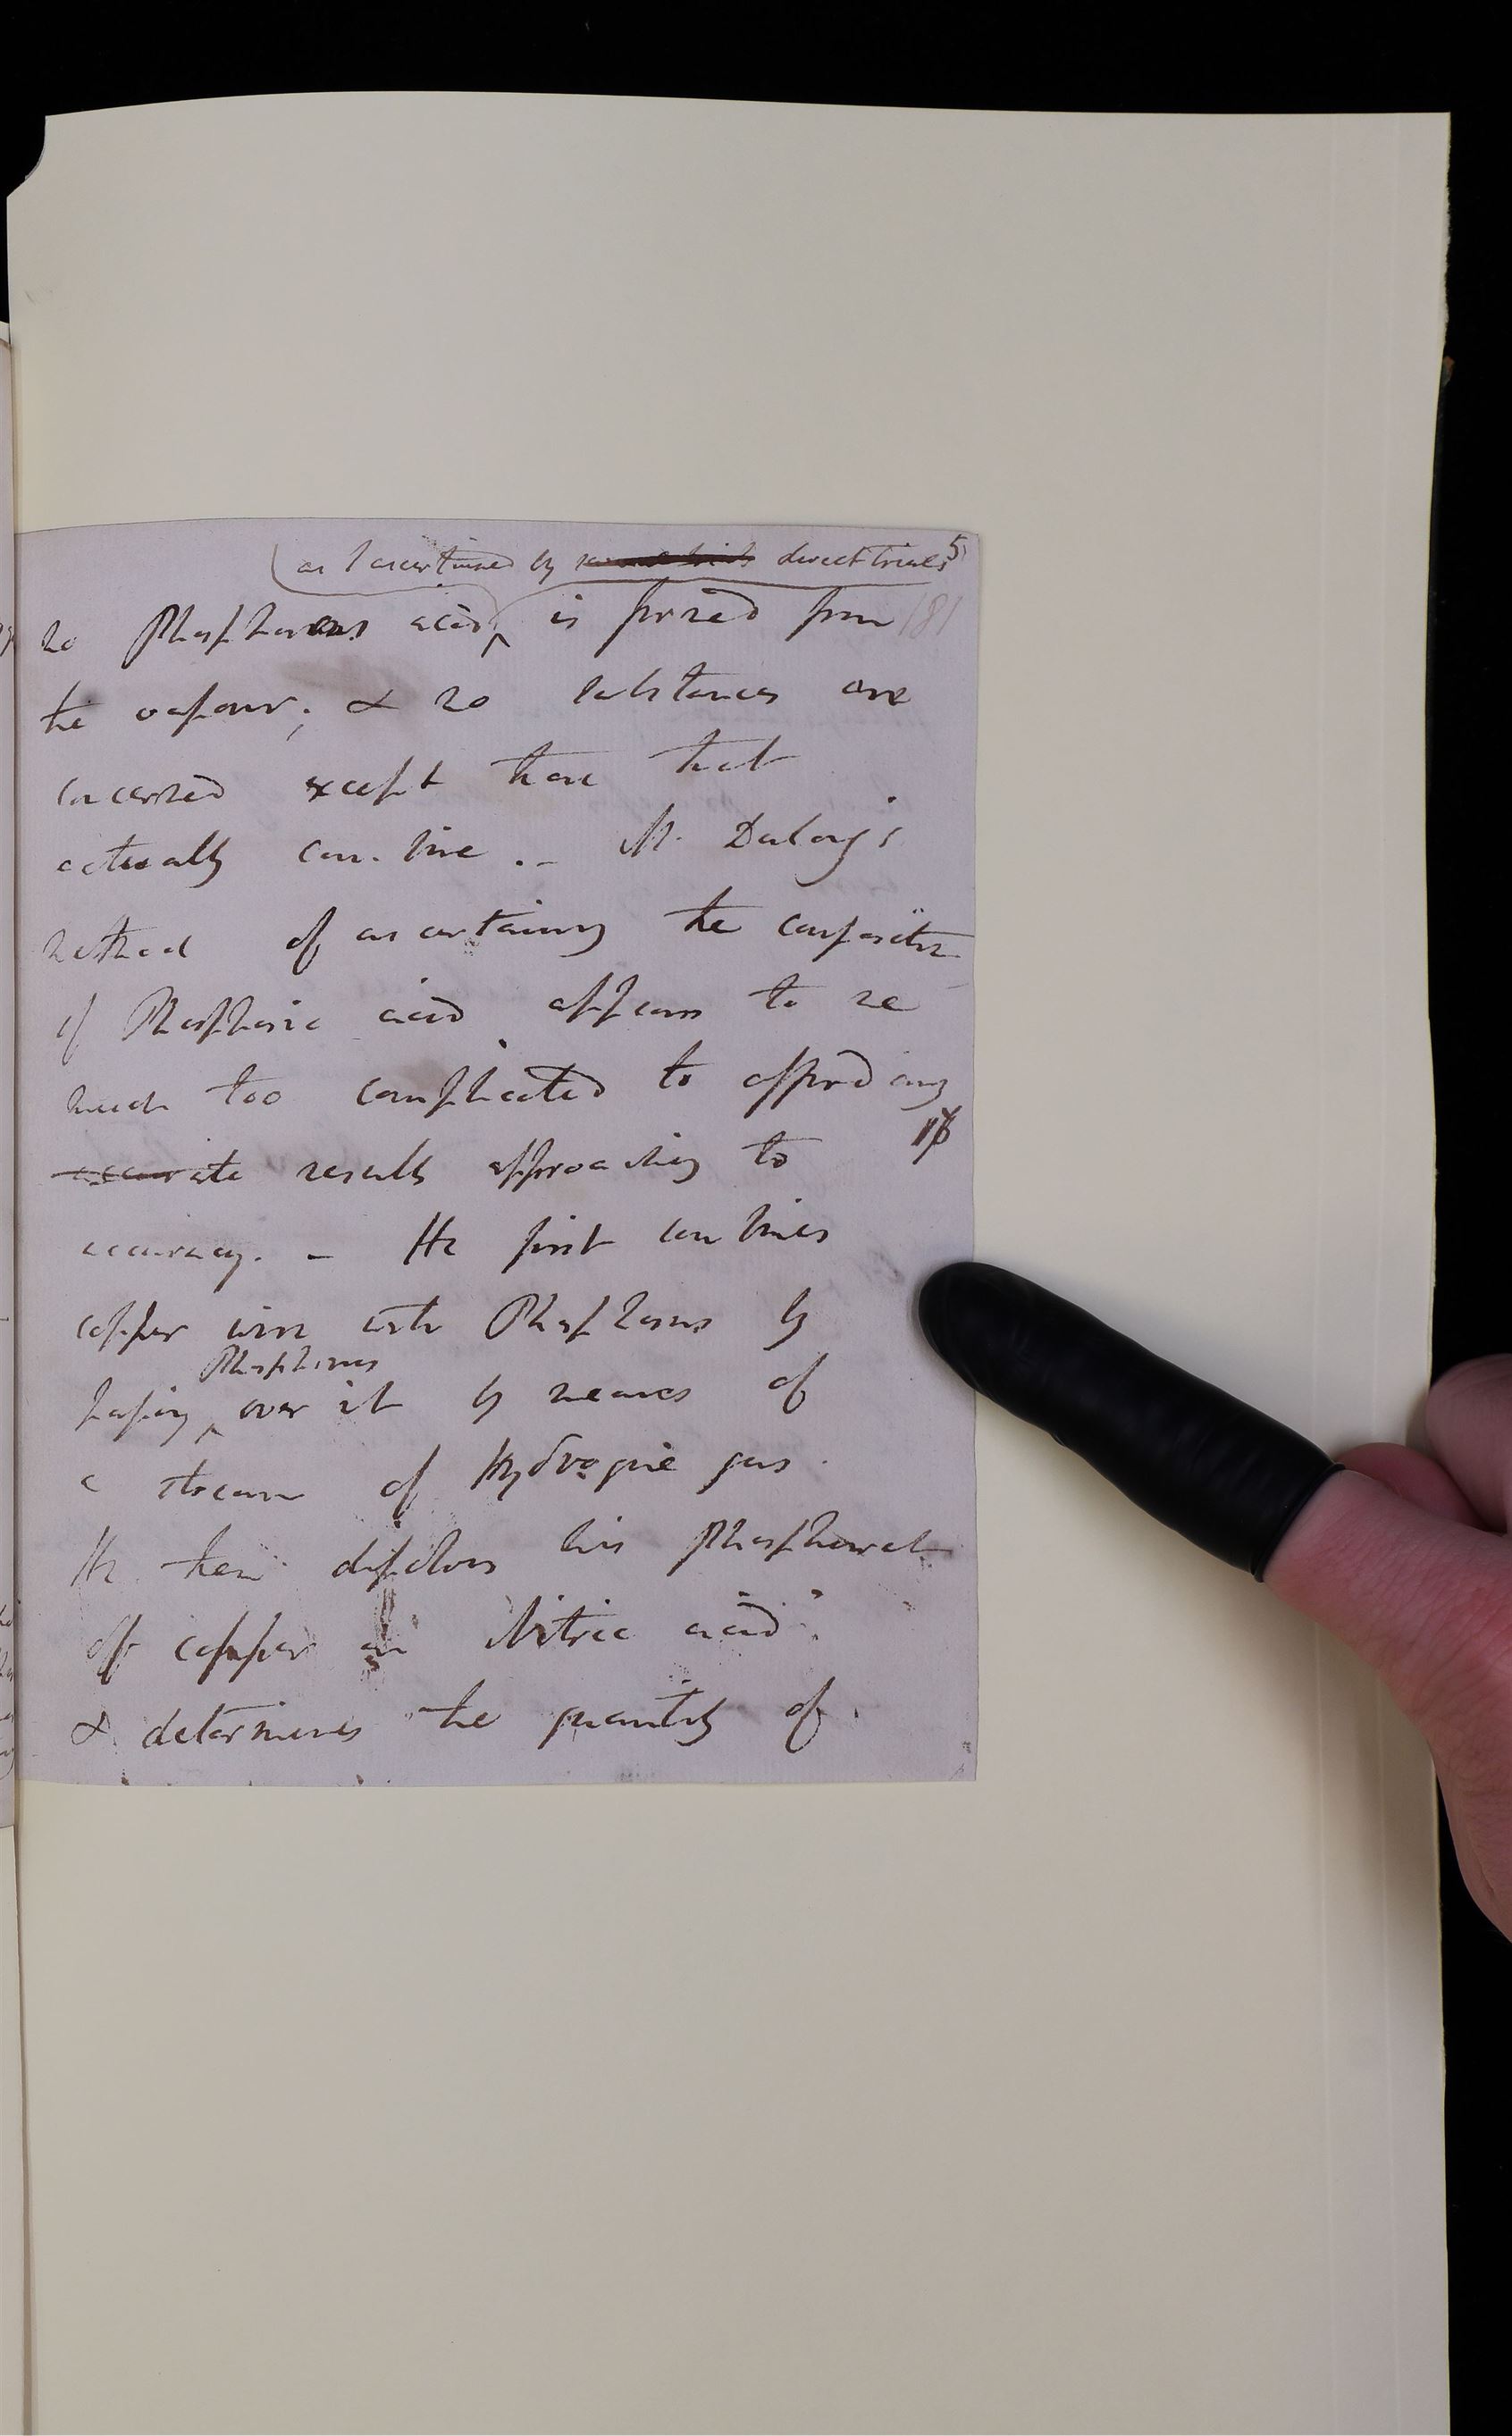 5
as I ascertained by several trials direct trials
no Phosphorous acid is formed from
181
the vapour; & no substances are
concerned except those that
actually combine. – M. Dulong's
method of ascertaining the composition
of Phosphoric acid appears to me
much too complicated to afford any
accurate results approaching to
accuracy. – He first combines
copper wire with Phosphorus by
Phosphorus
passing over it by means of
a stream of Hydrogene gas.
He then dissolves his phosphuret
of copper in Nitric acid
& determines the quantity of